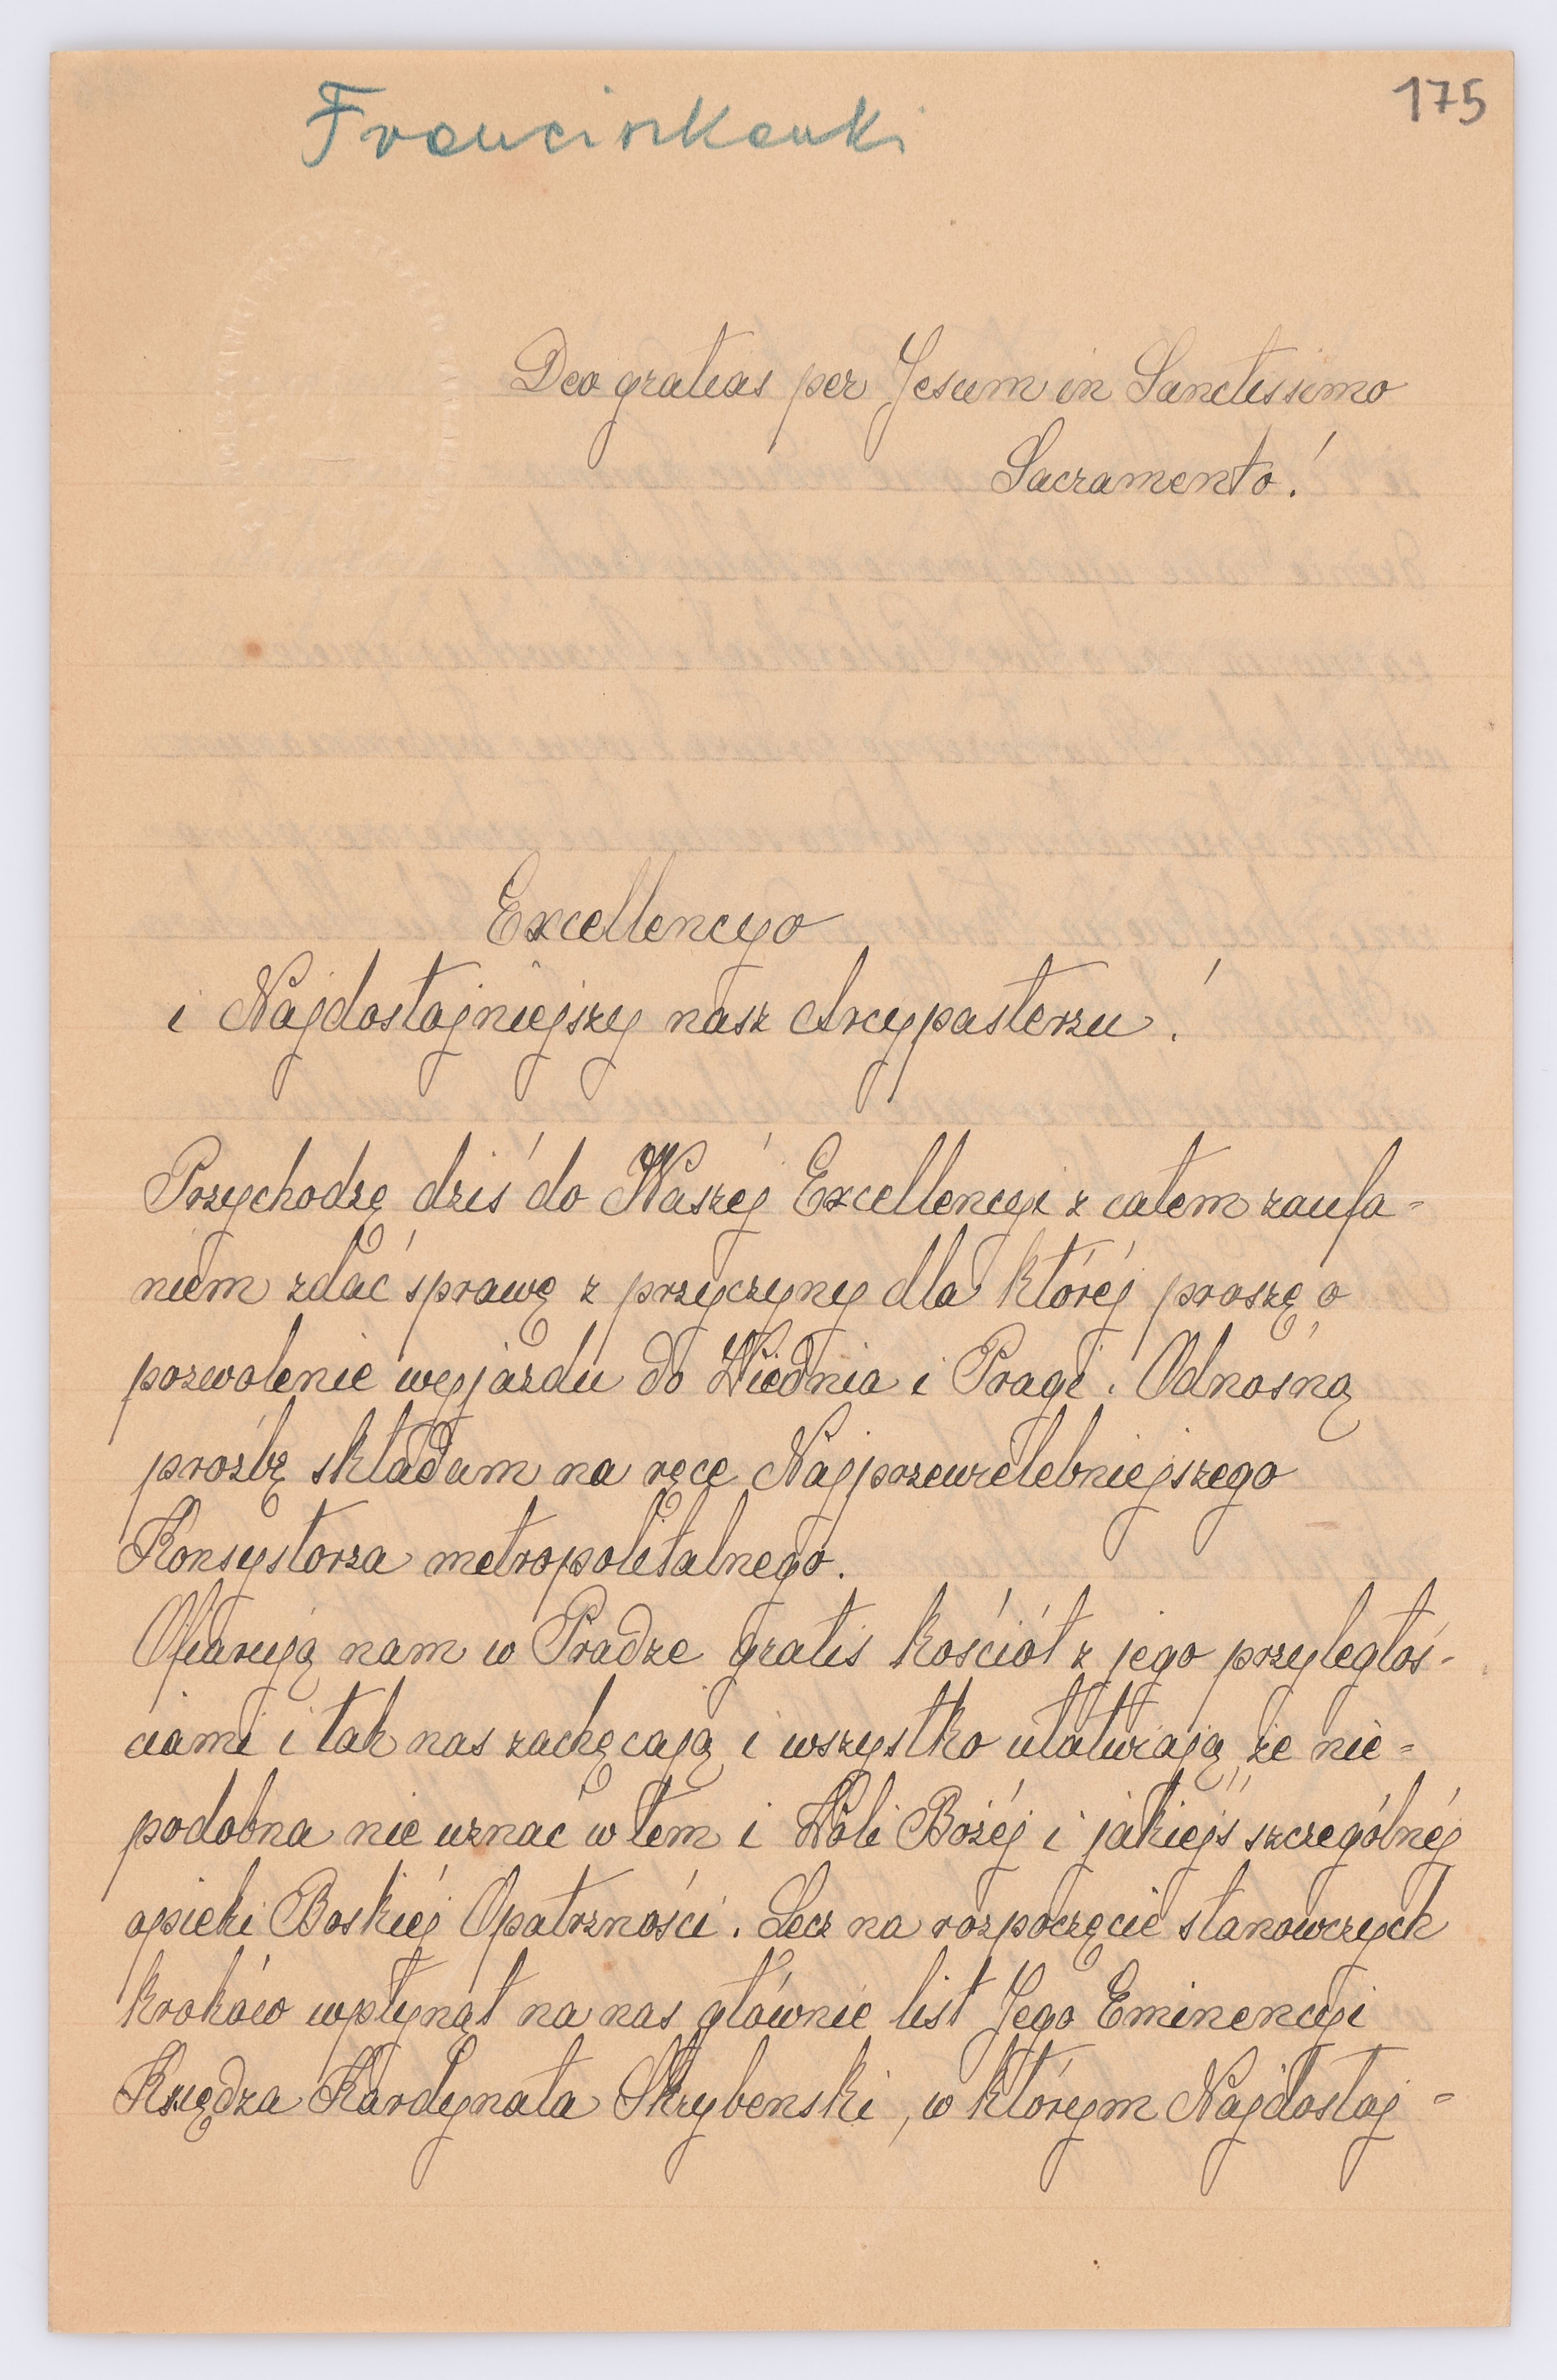 Franciszkanki
175
Deo gratias per Jesum in Sanctissimo
Sacramento!
Excellencyo
i Najdostojniejszy nasz Arcypasterzu!
Przychodzę dziś do Waszéj Excellencyi z całem zaufa-
niem zdać sprawę z przyczyny dla któréj proszę o
pozwolenie wyjazdu do Wiednia i Pragi. Odnośną
prośbę składam na ręce Najprzewielebniejszego
Konsystorza metropolitalnego.
Ofiarują nam w Pradze gratis kościół z jego przyległoś-
ciami i tak nas zachęcają i wszystko ułatwiają, że nie=
podobna nie uznać w tem i Woli Bożéj i jakiéjś szczególnéj
opieki Boskiéj Opatrzności. Lecz na rozpoczęcie stanowczych
kroków wpłynął na nas głównie list Jego Eminencyi
Księdza Kardynała Skrybenski, w którym Najdostoj=